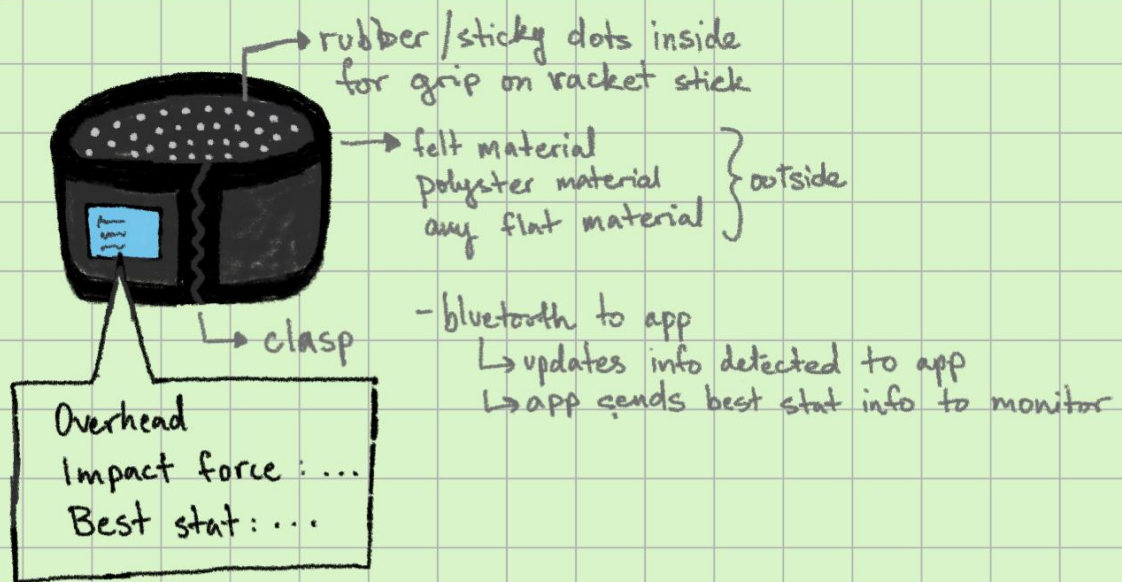 rubber/sticky dots inside
for grip on racket stick
felt material
polyster material
any flat material
outside
clasp
- bluetooth to app
↳ updates info detected to app
↳ app sends best stat info to monitor
Overhead
Impact force : ...
Best stat : ...